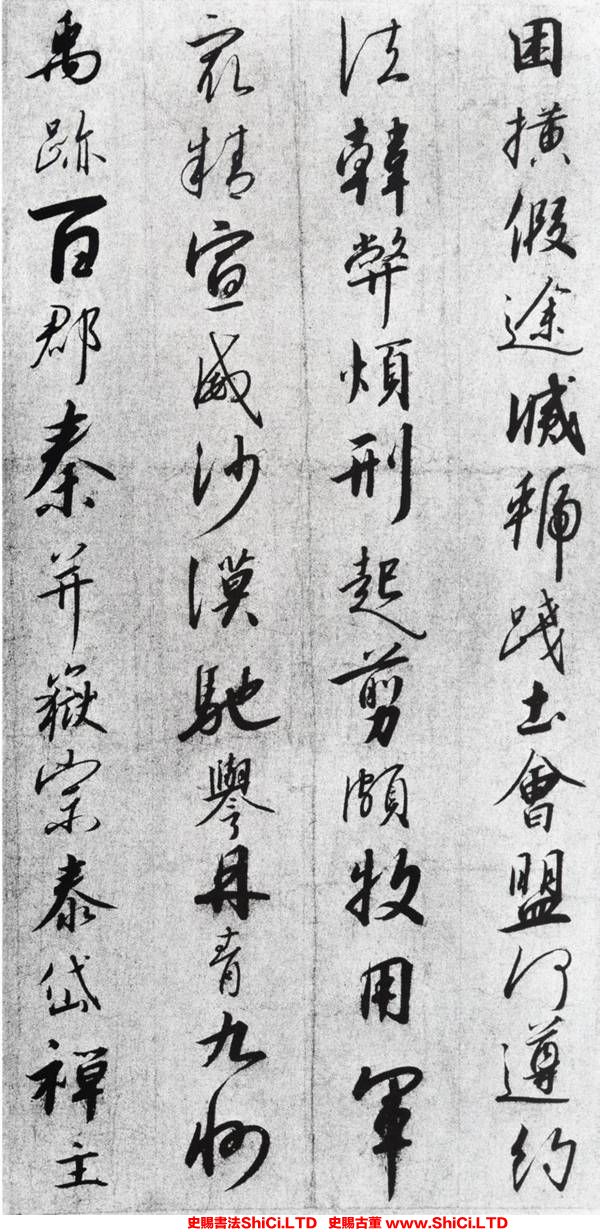 困横假途滅虢踐土會盟何遵約
法韓弊煩刑起剪頗牧用軍
最精宣威沙漠馳譽丹青九州
禹跡百郡秦并嶽宗泰岱禪主
史賜書法ShiCi.LTD 史賜古董 www.ShiCi.LTD